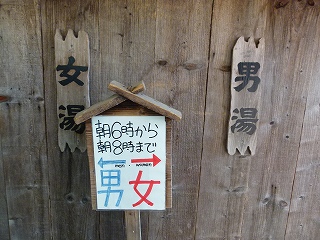 女湯
男湯
朝6時から
朝8時まで
men women
男 女